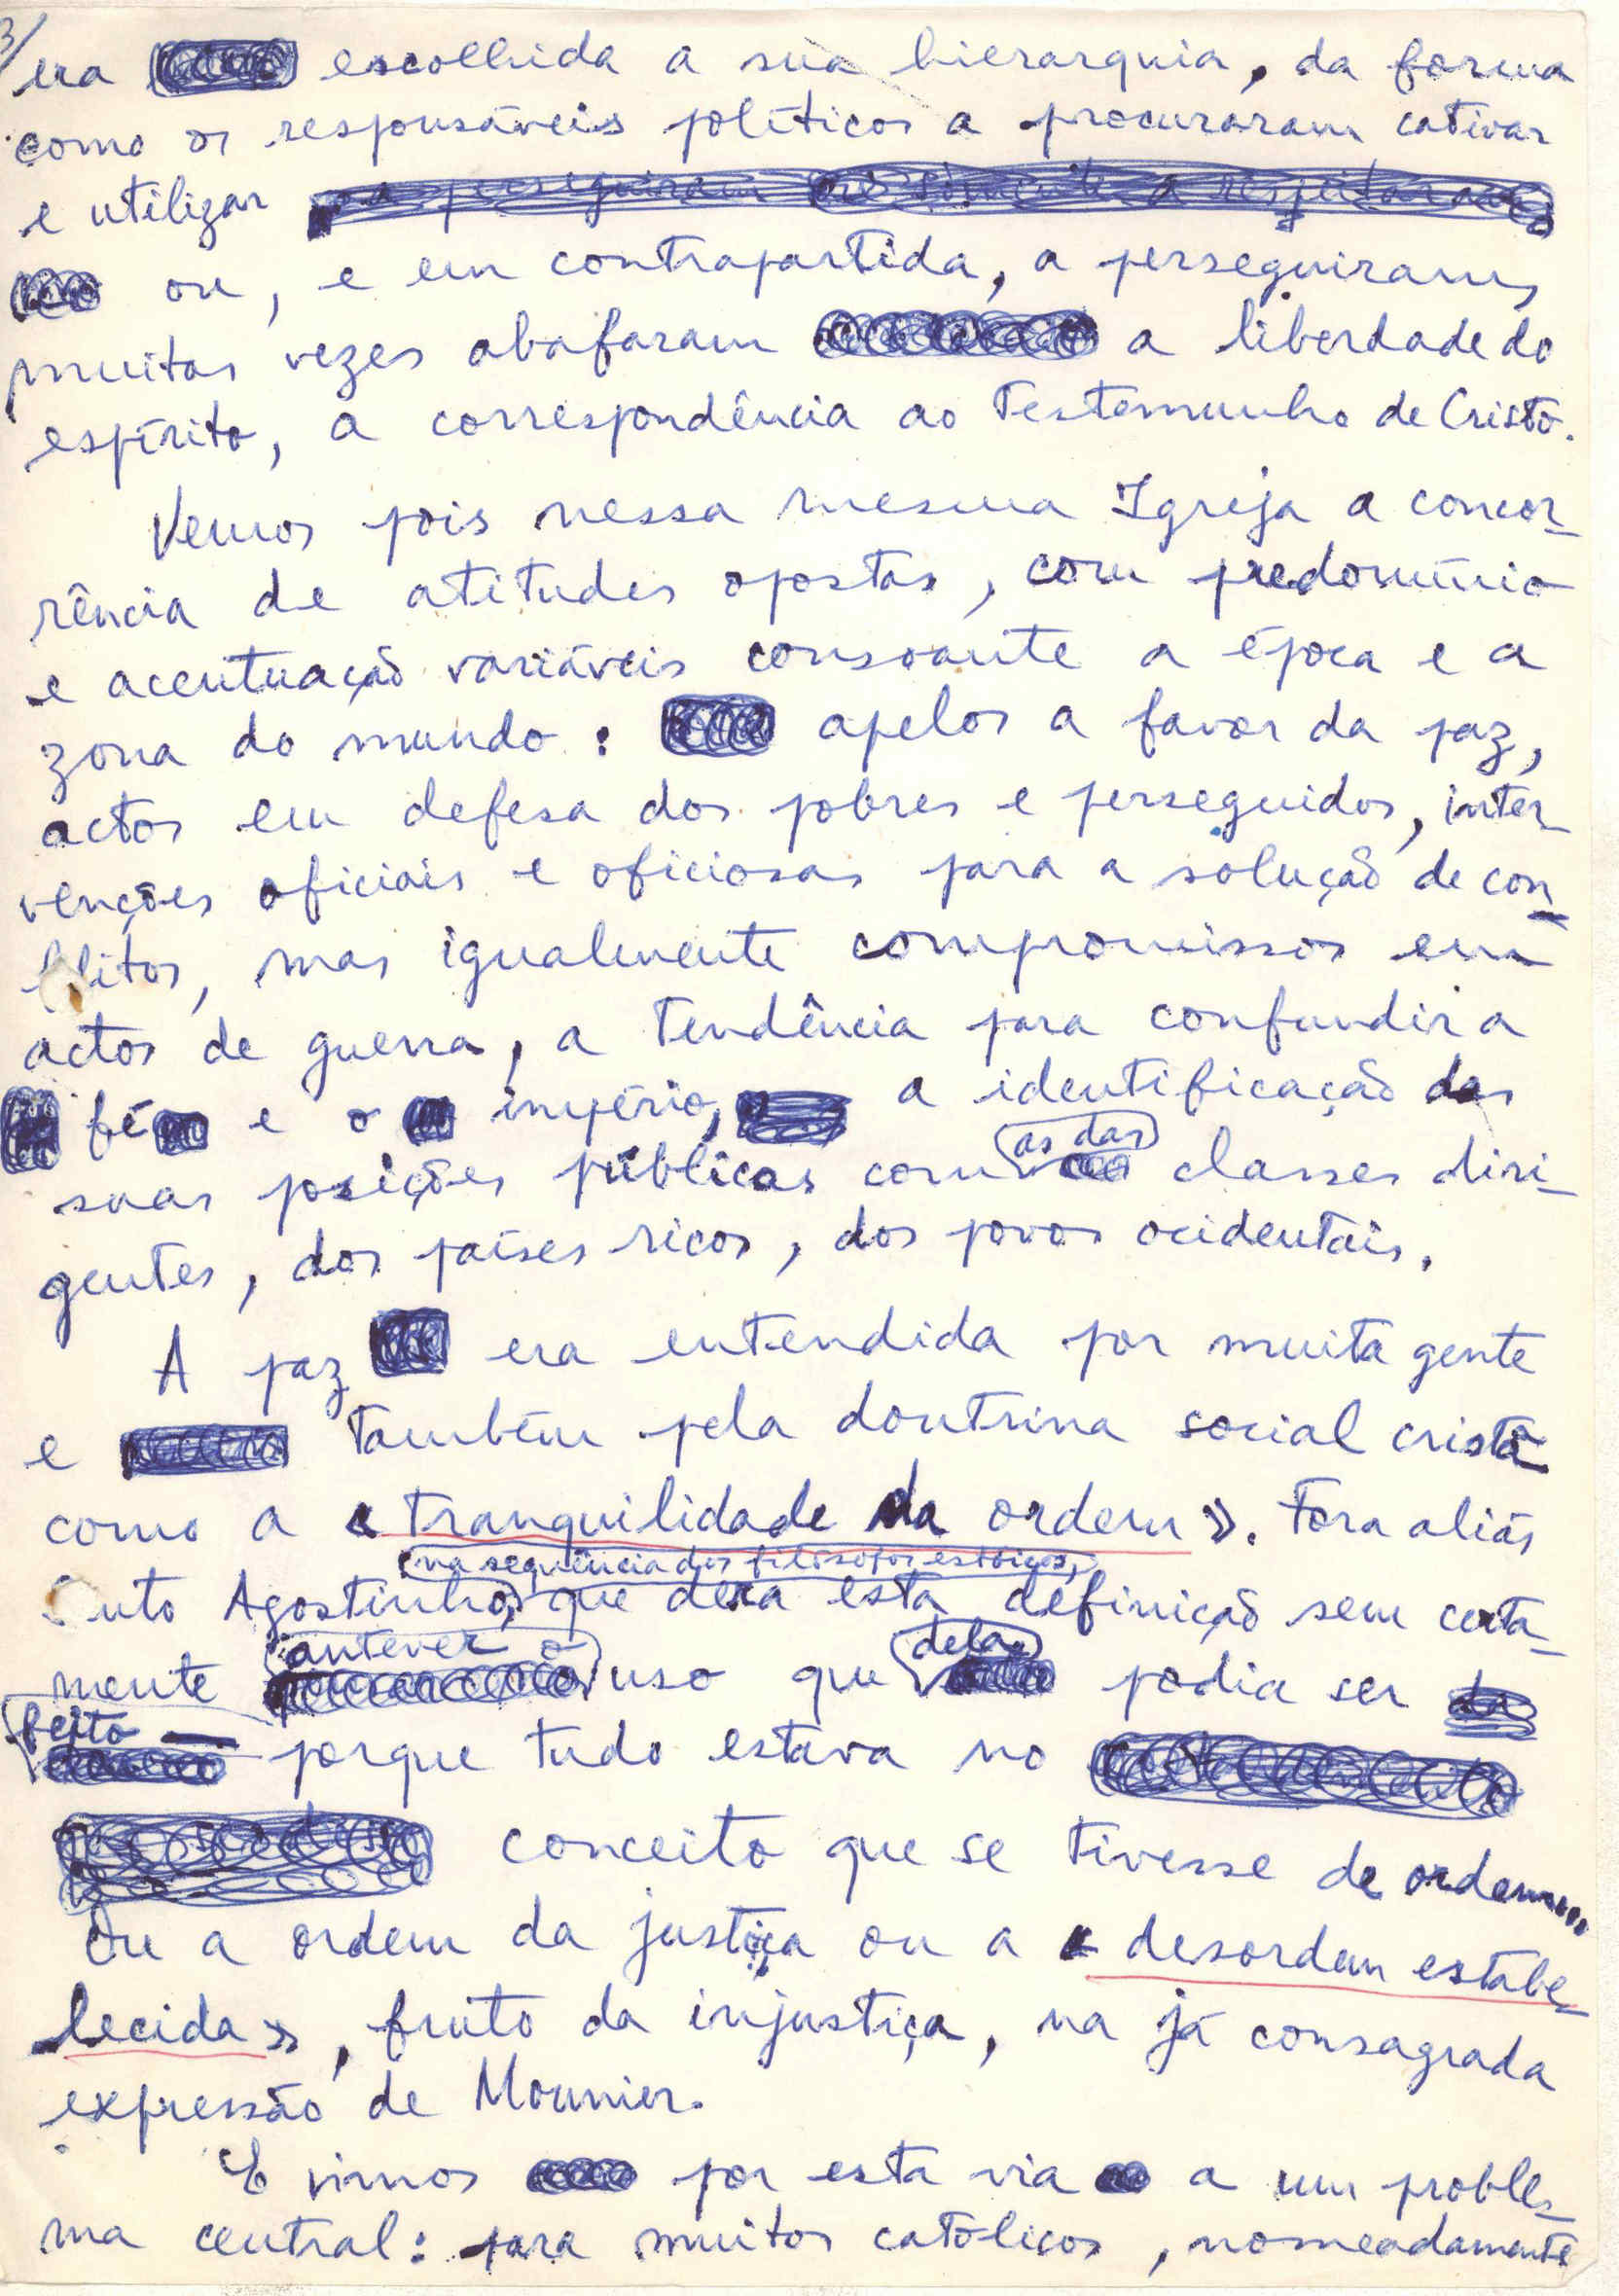 3/
era escolhida a sua hierarquia, da forma
como os responsáveis políticos a procuraram cativar
e utilizar
ou, e em contrapartida, a perseguiram,
muitas vezes abafaram a liberdade do
espírito, a correspondência ao Testemunho de Cristo.
Vemos pois nessa mesma Igreja a concor-
rência de atitudes opostas, com predomínio
e acentuação variáveis consoante a época e a
zona do mundo: apelos a favor da paz,
actos em defesa dos pobres e perseguidos, inter-
venções oficiais e oficiosas para a solução de con-
flitos, mas igualmente compromissos em
actos de guerra, a tendência para confundir a
fé e o império, a identificação das
suas posições públicas com as das classes diri-
gentes, dos países ricos, dos povos ocidentais.
A paz era entendida por muita gente
e também pela doutrina social cristã
como a «tranquilidade da ordem». Fora aliás
na sequência dos filósofos estóicos,
nto Agostinho, que dera esta definição sem certa-
mente antever o uso que dela podia ser
feito — porque tudo estava no
conceito que se tivesse de ordem...
Ou a ordem da justiça ou a «desordem estabe-
lecida», fruto da injustiça, na já consagrada
expressão de Mounier.
E vimos por esta via a um proble-
ma central: para muitos católicos, nomeadamente